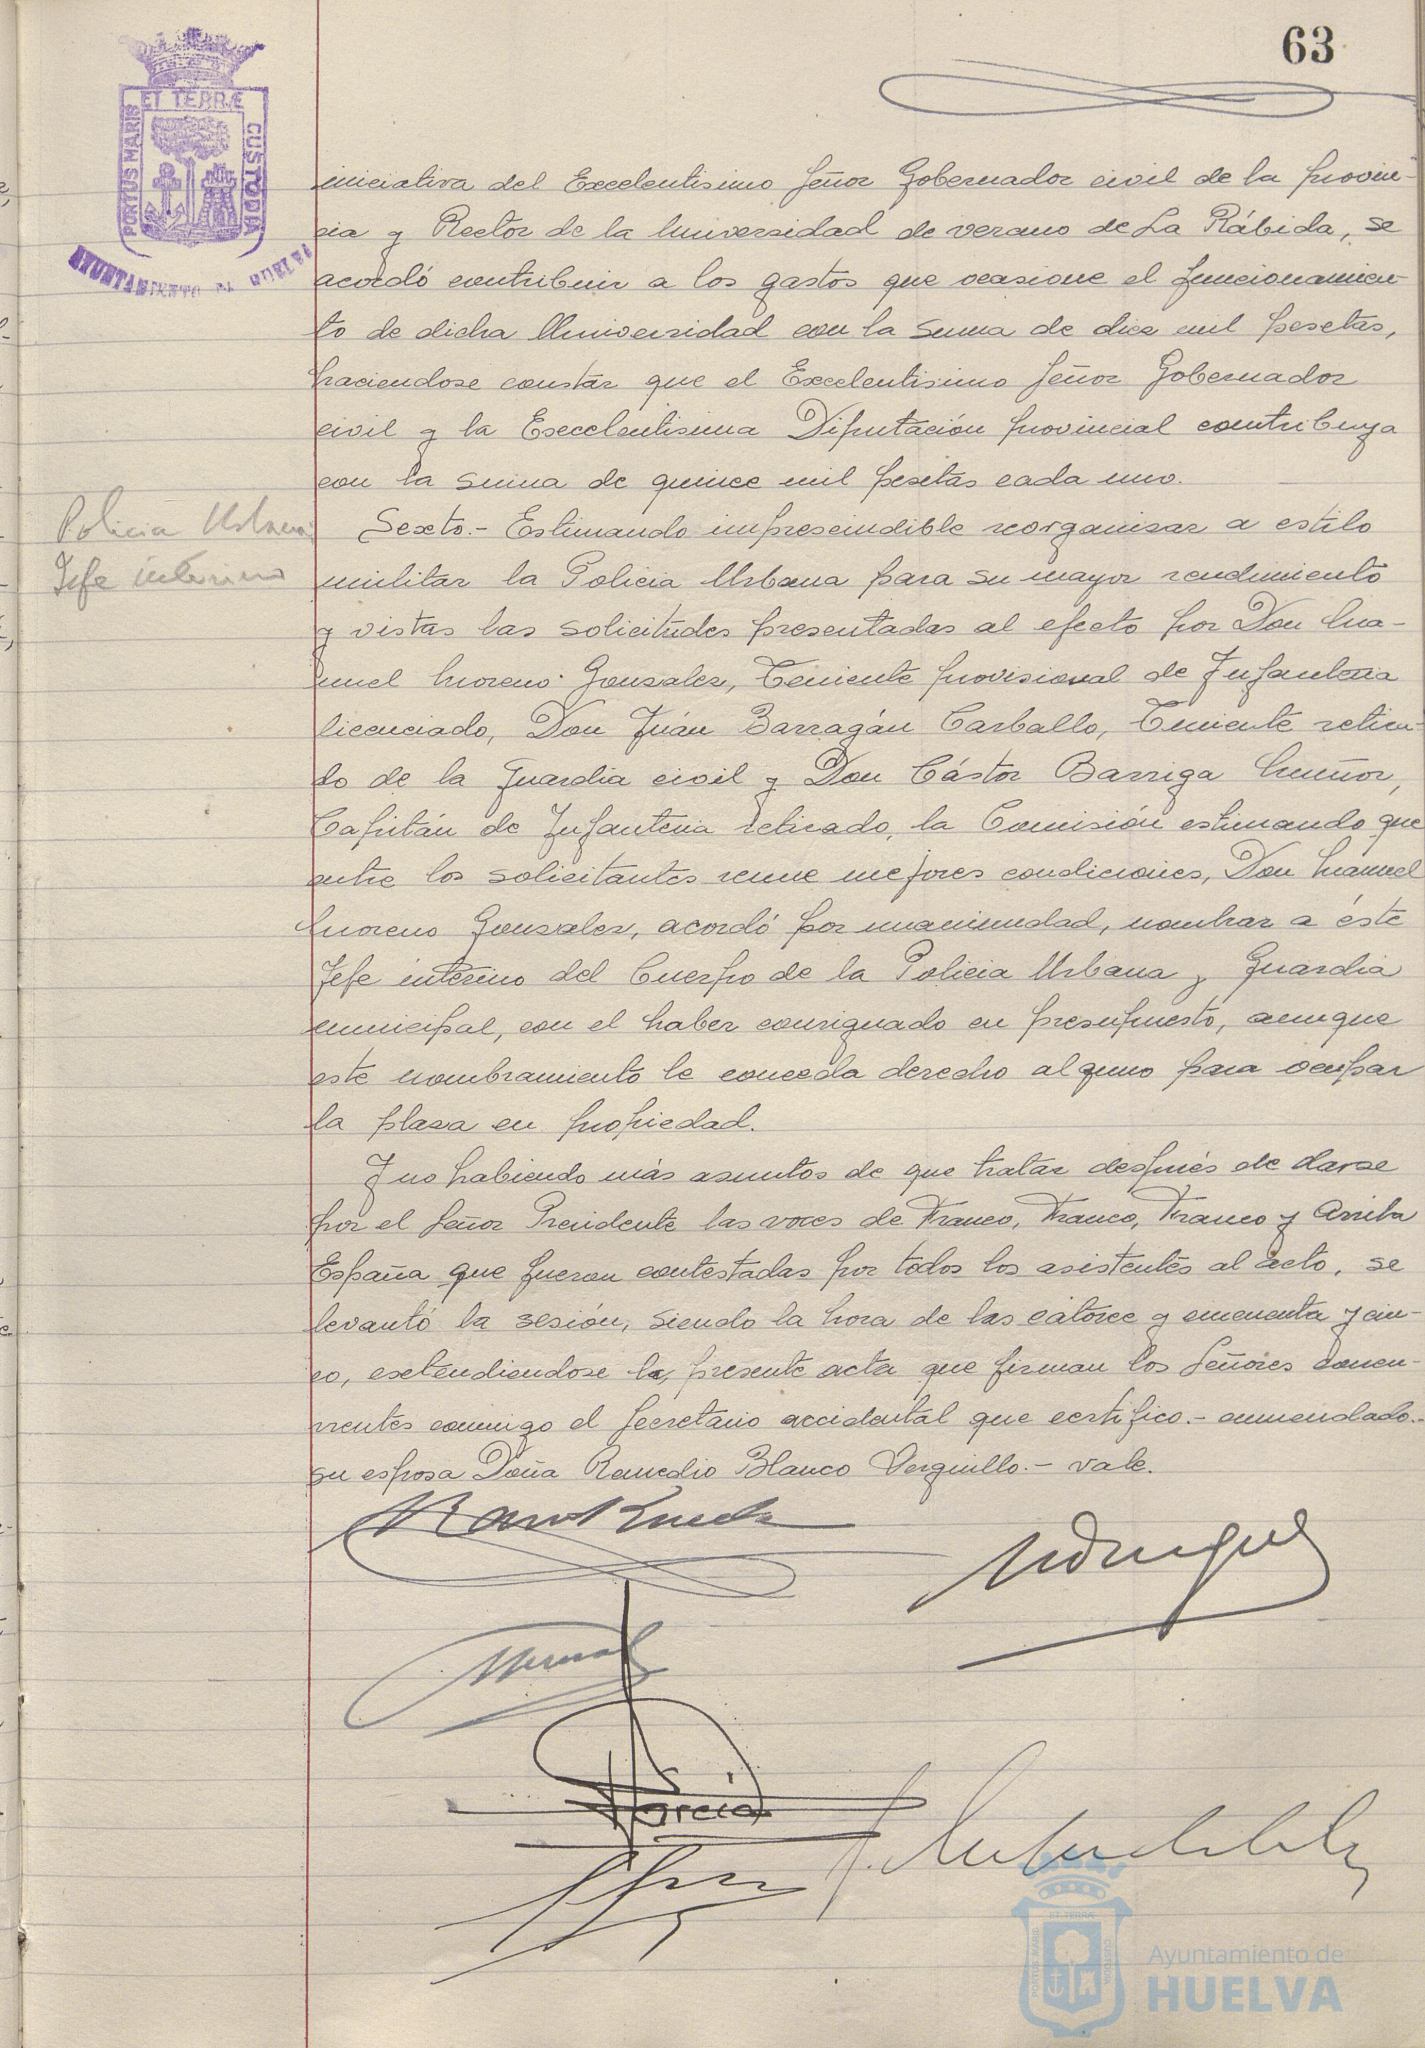 63
ET TERRÆ
PORTUS MARIS
CUSTODIA
AYUNTAMIENTO DE HUELVA
iniciativa del Excelentisimo Señor Gobernador civil de la provin-
cia y Rector de la Universidad de verano de La Rábida, se
acordó contribuir a los gastos que ocasione el funcionamien-
to de dicha Universidad con la suma de diez mil pesetas,
haciendose constar que el Excelentisimo Señor Gobernador
civil y la Excelentisima Diputación provincial contribuya
con la suma de quince mil pesetas cada uno.
Policia Urbana
Jefe interino
Sexto.- Estimando imprescindible reorganizar a estilo
militar la Policia Urbana para su mayor rendimiento
y vistas las solicitudes presentadas al efecto por Don Ma-
nuel Moreno Gonzalez, Teniente provisional de Infanteria
licenciado, Don Juán Barragán Carballo, Teniente retira-
do de la Guardia civil y Don Cástor Barriga Muñoz,
Capitán de Infanteria retirado, la Comisión estimando que
entre los solicitantes reune mejores condiciones, Don Manuel
Moreno Gonzalez, acordó por unanimidad, nombrar a éste
Jefe interino del Cuerpo de la Policia Urbana y Guardia
municipal, con el haber consignado en presupuesto, aunque
este nombramiento le conceda derecho alguno para ocupar
la plaza en propiedad.
Y no habiendo más asuntos de que tratar después de darse
por el Señor Presidente las voces de Franco, Franco, Franco y Arriba
España que fueron contestadas por todos los asistentes al acto, se
levantó la sesión, siendo la hora de las catorce y cincuenta y cin-
co, extendiendose la presente acta que firman los Señores concu-
rrentes conmigo el Secretario accidental que certifico.- enmendado.-
su esposa Doña Remedio Blanco Verguillo.- vale.
Garcia
Ayuntamiento de
HUELVA